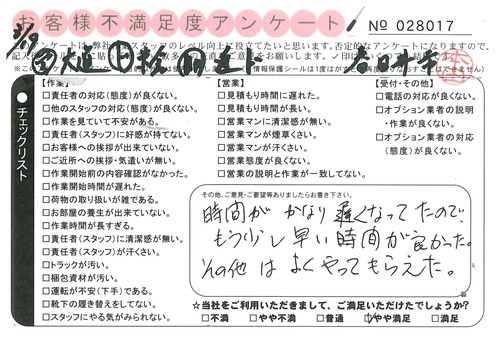 お客様不満足度アンケート
No 028017
チェックリスト
【作業】
□責任者の対応(態度)が良くない。
□他のスタッフの対応(態度)が良くない。
□作業を見ていて不安がある。
□責任者(スタッフ)に好感が持てない。
□お客様への挨拶が出来ていない。
□ご近所への挨拶・気遣いが無い。
□作業開始前の内容確認がなかった。
□作業開始時間が遅れた。
□荷物の取り扱いが雑である。
□お部屋の養生が出来ていない。
□作業時間が長すぎる。
□責任者(スタッフ)に清潔感が無い。
□責任者(スタッフ)が汗くさい。
□トラックが汚い。
□梱包資材が汚い。
□運転が不安(下手)である。
□靴下の履き替えをしてない。
□スタッフにやる気がみられない。
【営業】
□見積もり時間に遅れた。
□見積もり時間が長い。
□営業マンに清潔感が無い。
□営業マンが煙草くさい。
□営業マンが汗くさい。
□営業態度が良くない。
□営業の説明と作業が一致してない。
【受付・その他】
□電話の対応が良くない。
□オプション業者の説明
・作業が良くない。
□オプション業者の対応
(態度)が良くない。
その他、ご意見・ご要望等ありましたらお書き下さい。
時間がかなり遅くなってたので、
もう少し早い時間が良かった。
その他はよくやってもらえた。
☆当社をご利用いただきまして、ご満足いただけたでしょうか?
□不満 □やや不満 □普通 □やや満足 □満足